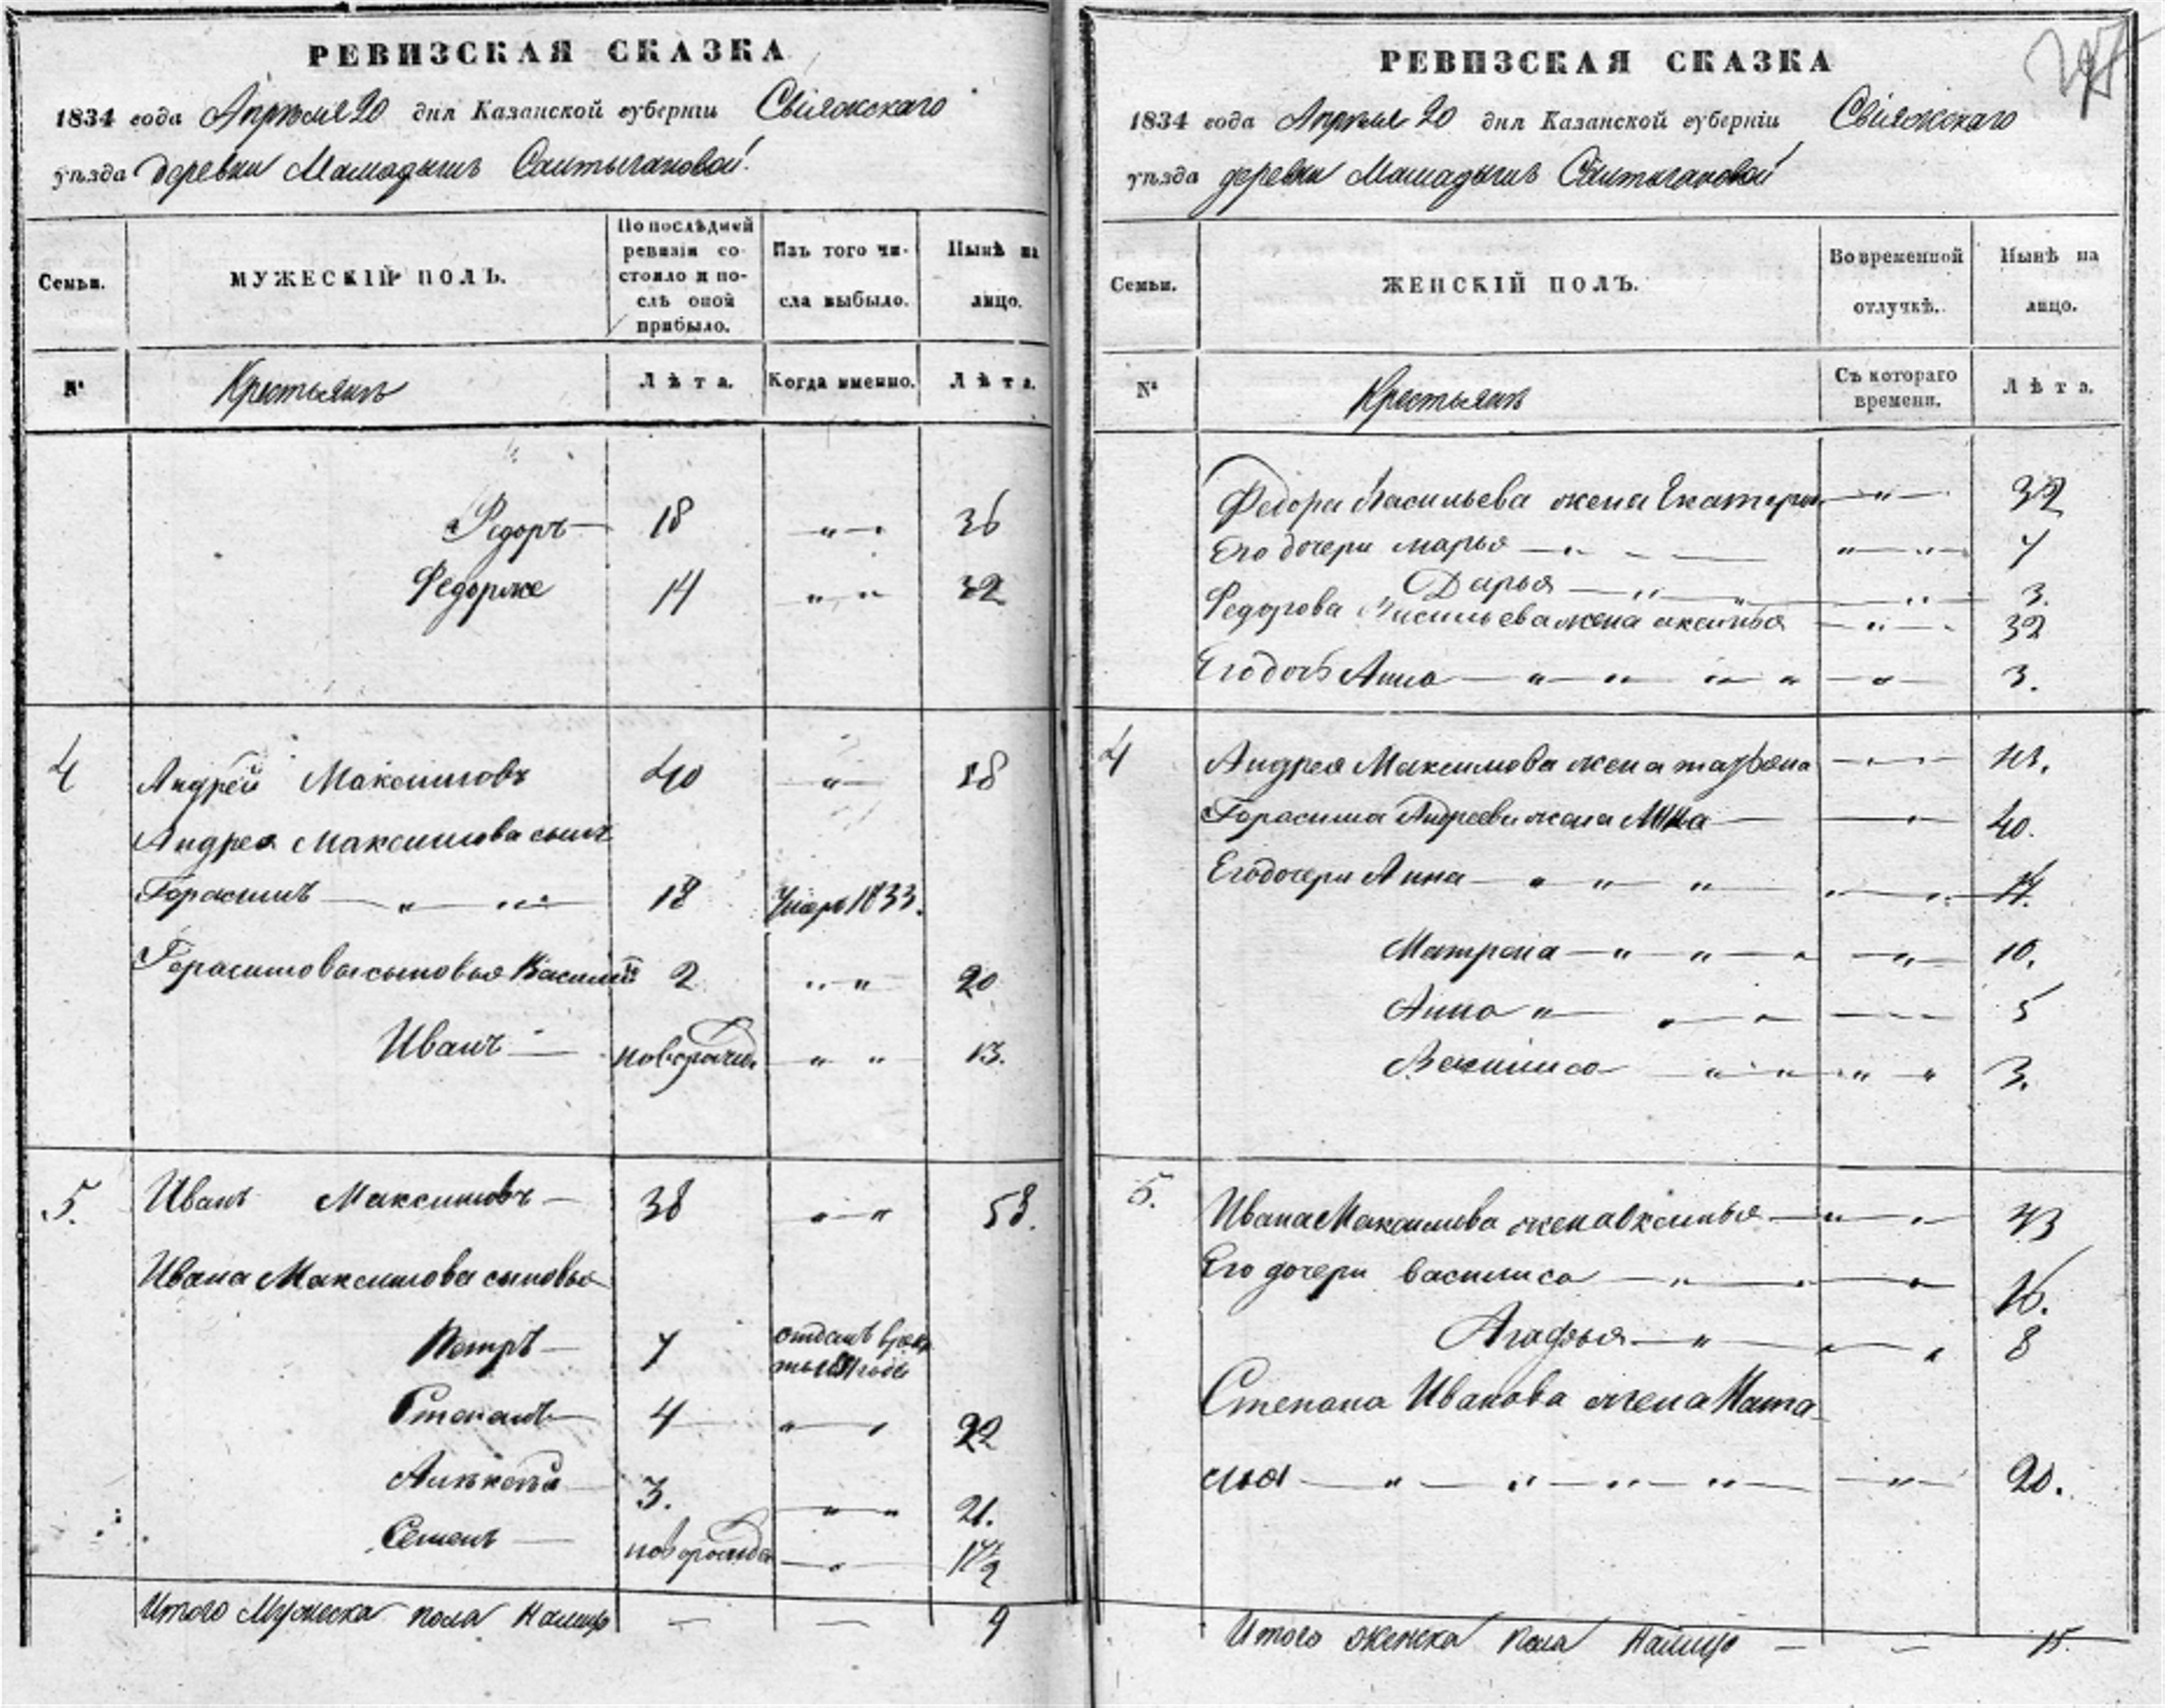 РЕВИЗСКАЯ СКАЗКА
1834 года Апреля 20 дня Казанской губернiи Свiяжскаго
уѣзда деревни Мамадышъ Саитыгановой.
Семьи.
МУЖЕСКIЙ ПОЛЪ.
По послѣдней ревизiи состояло и послѣ оной прибыло.
Изъ того числа выбыло.
Нынѣ на лицо.
№
Крестьянъ
Лѣта.
Когда именно.
Лѣта.
Федоръ — 18 „ — „ 36
Федорже 14 „ „ 32
4 Андрей Максимовъ 40 — „ — 58
Андрея Максимова сынъ
Герасимъ — „ — „ — 18 Умеръ 1833.
Герасимовы сыновья Василiй 2 „ „ 20
Иванъ — новорожде. „ „ 13.
5. Иванъ Максимовъ — 38 „ — „ 53.
Ивана Максимова сыновья
Петръ — 7 отданъ в рекр
ты 1831 годъ
Степанъ — 4 „ — „ 22
Алѣксѣй — 3. „ — „ 21.
Семенъ — новорожде — „ — 17½
Итого Мужеска пола налицо — — 9
РЕВИЗСКАЯ СКАЗКА
1834 года Апреля 20 дня Казанской губернiи Свiяжскаго
уѣзда деревни Мамадышъ Саитыгановой
Семьи.
ЖЕНСКIЙ ПОЛЪ.
Во временной отлучкѣ.
Нынѣ на лицо.
№
Крестьянъ
Съ котораго времени.
Лѣта.
Федора Васильева жена Екатерин — „ — 32
Его дочери марья — „ — — „ — „ 7
Дарья — „ „ — „ — 3.
Федорова Васильева жена аксинья — „ — 32
Его дочь Анна — „ — „ „ „ — „ — 3.
4 Андрея Максимова жена
Герасима Андреева жена Анна — „ — 40.
Его дочери Анна — „ „ „ „ — „ 14.
Матрена — „ „ — „ — „ — 10.
Анна „ — „ „ — — — 5
Василиса „ „ „ „ 3.
5. Ивана Максимова жена аксинья — „ — „ — 43
Его дочери василиса — „ — „ — „ 16.
Агафья — „ — „ „ 8
Степана Иванова жена Ната-
лья — „ — „ — „ — „ — — „ — 20.
Итого женска пола налицо — — 15.